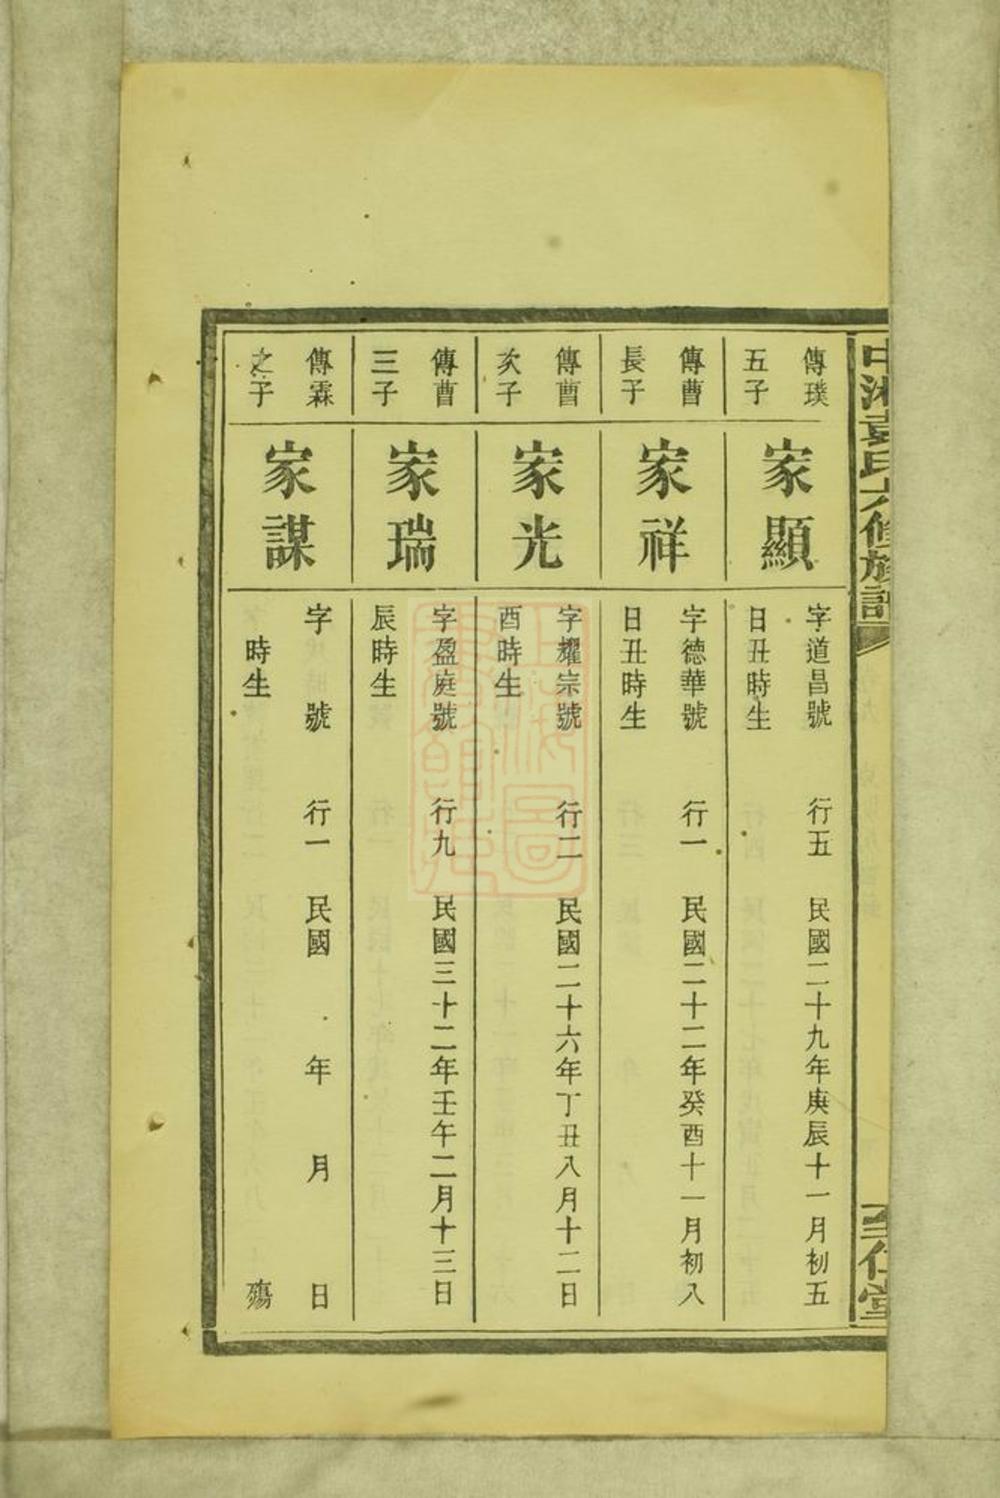 中湘袁氏六修族譜
至仁堂
傳璞
五子
家顯
字道昌號 行五 民國二十九年庚辰十一月初五
日丑時生
傳曹
長子
家祥
字德華號 行一 民國二十二年癸酉十一月初八
日丑時生
傳曹
次子
家光
字耀宗號 行二 民國二十六年丁丑八月十二日
酉時生
傳曹
三子
家瑞
字盈庭號 行九 民國三十二年壬午二月十三日
辰時生
傳霖
之子
家謀
字 號 行一 民國 年 月 日
時生 殤